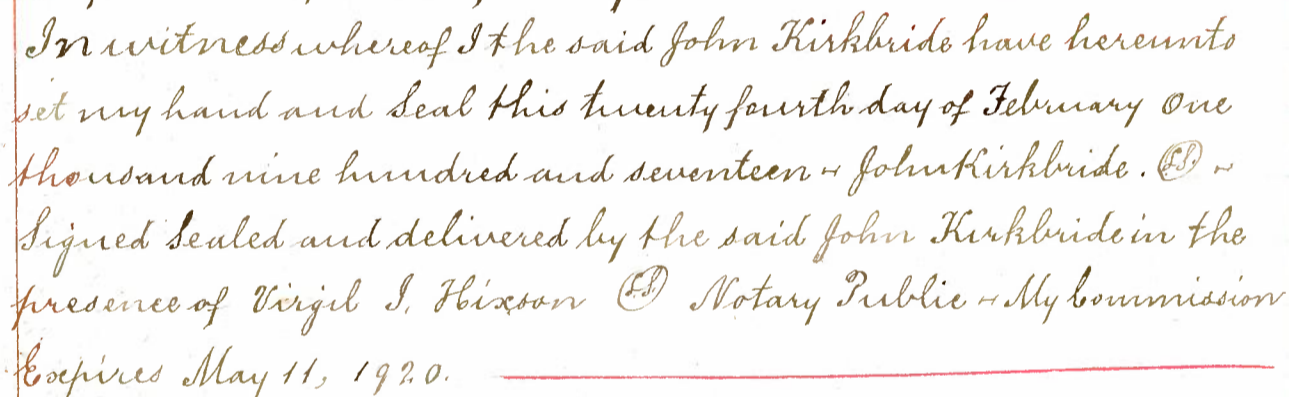 In witness whereof I the said John Kirkbride have hereunto
set my hand and Seal this twenty fourth day of February One
thousand nine hundred and seventeen ~ John Kirkbride. L.S. ~
Signed Sealed and delivered by the said John Kirkbride in the
presence of Virgil I. Hixson L.S. Notary Public ~ My Commission
Expires May 11, 1920.